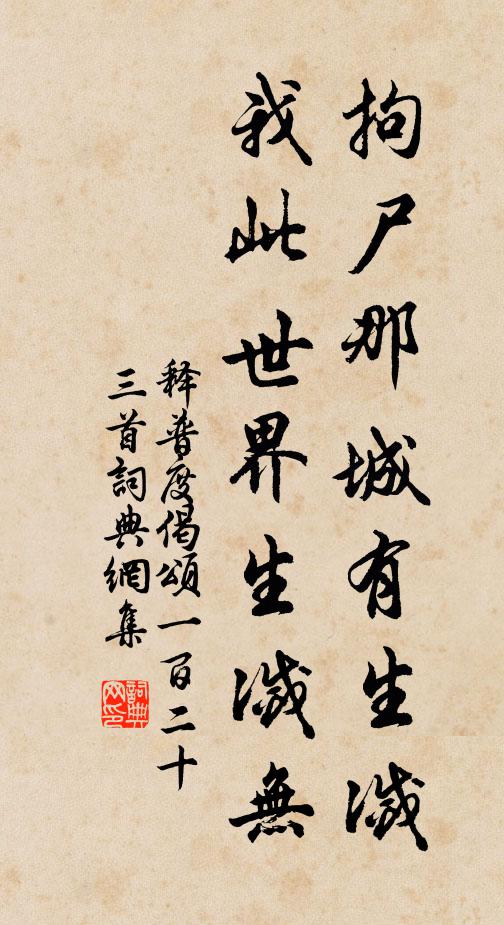 拘尸那城有生滅
我此世界生滅無
释普度偈頌一百二十
三首詞典網集
詞典
网印